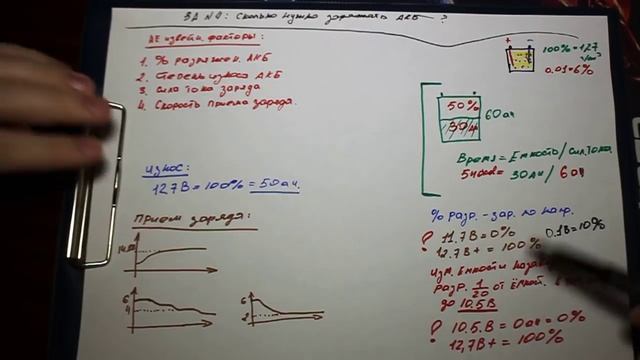 Сколько нужно заряжать АКБ?
Не извест. факторы:
1. % разряжен. АКБ
2. Степень износа АКБ
3. Сила тока заряда
4. Скорость приема заряда.
+ -
100% = 1.27
0.01 = 6%
50%
30Ач
60Ач
Время = Емкость / Сил. тока.
5 часов = 30Ач / 6Ач
Износ:
12.7В = 100% = 50Ач.
Прием заряда:
6
4
6
2
% разр. - зар. по напр.
? 11.7В = 0%
0.1В = 10%
12.7В+ = 100%
Изм. Емкости
разр. 1/20 от Ёмкост.
до 10.5В
? 10.5В = 0Ач = 0%
12,7В+ = 100%